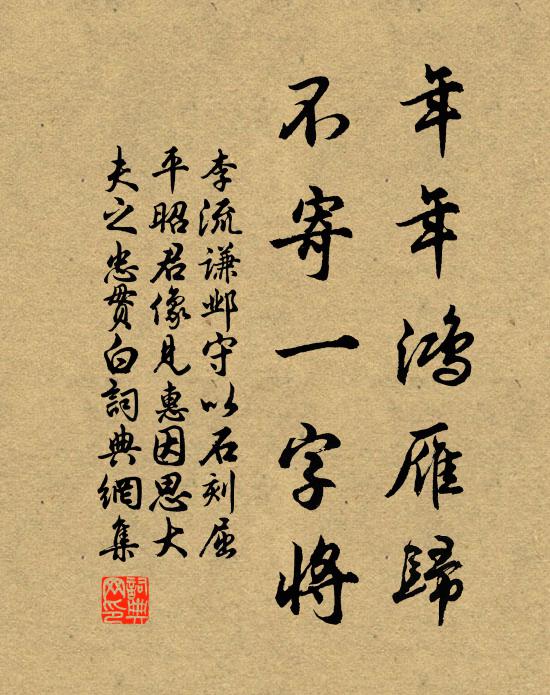 年年鴻雁歸
不寄一字將
李流謙邺守以石刻屈
平昭君像見惠因思大
夫之忠貫白詞典網集
詞典
网印